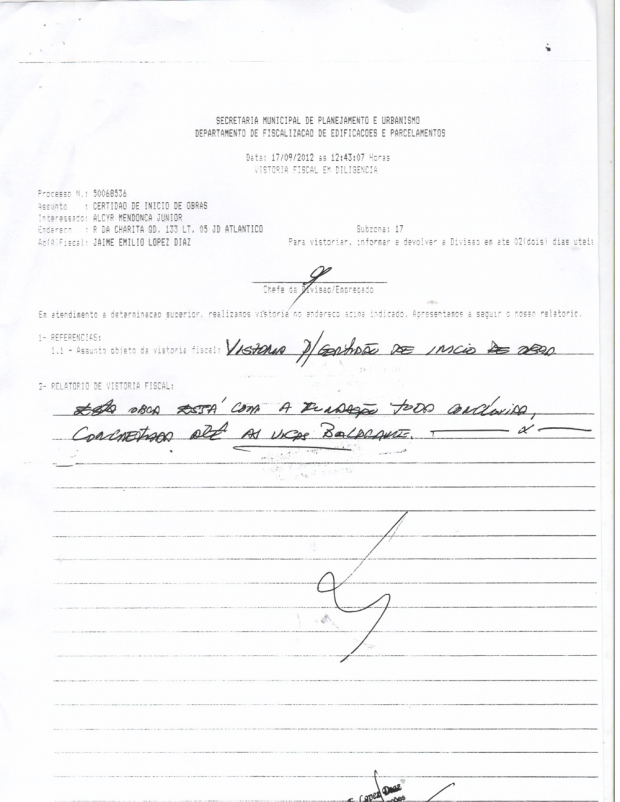 SECRETARIA MUNICIPAL DE PLANEJAMENTO E URBANISMO
DEPARTAMENTO DE FISCALIZACAO DE EDIFICACOES E PARCELAMENTOS
Data: 17/09/2012 as 12:43:07 Horas
VISTORIA FISCAL EM DILIGENCIA
Processo N.: 50068536
Assunto : CERTIDAO DE INICIO DE OBRAS
Interessado: ALCYR MENDONCA JUNIOR
Endereco : R DA CHARITA QD. 133 LT. 05 JD ATLANTICO Subzona: 17
Ao(A)Fiscal: JAIME EMILIO LOPEZ DIAZ Para vistoriar, informar e devolver a Divisao em ate 02(dois) dias uteis
Chefe da Divisao/Empregado
Em atendimento a determinacao superior, realizamos vistoria no endereco acima indicado. Apresentamos a seguir o nosso relatorio.
1- REFERENCIAS:
1.1 - Assunto objeto da vistoria fiscal: VISTORIA P/ CERTIDÃO DE INICIO DE OBRA
2- RELATORIO DE VISTORIA FISCAL:
ESTA OBRA ESTÁ COM A FUNDAÇÃO TODA CONCLUIDA,
CONCRETADA ATÉ AS VIGAS BALDRAME. x
Lopez Diaz